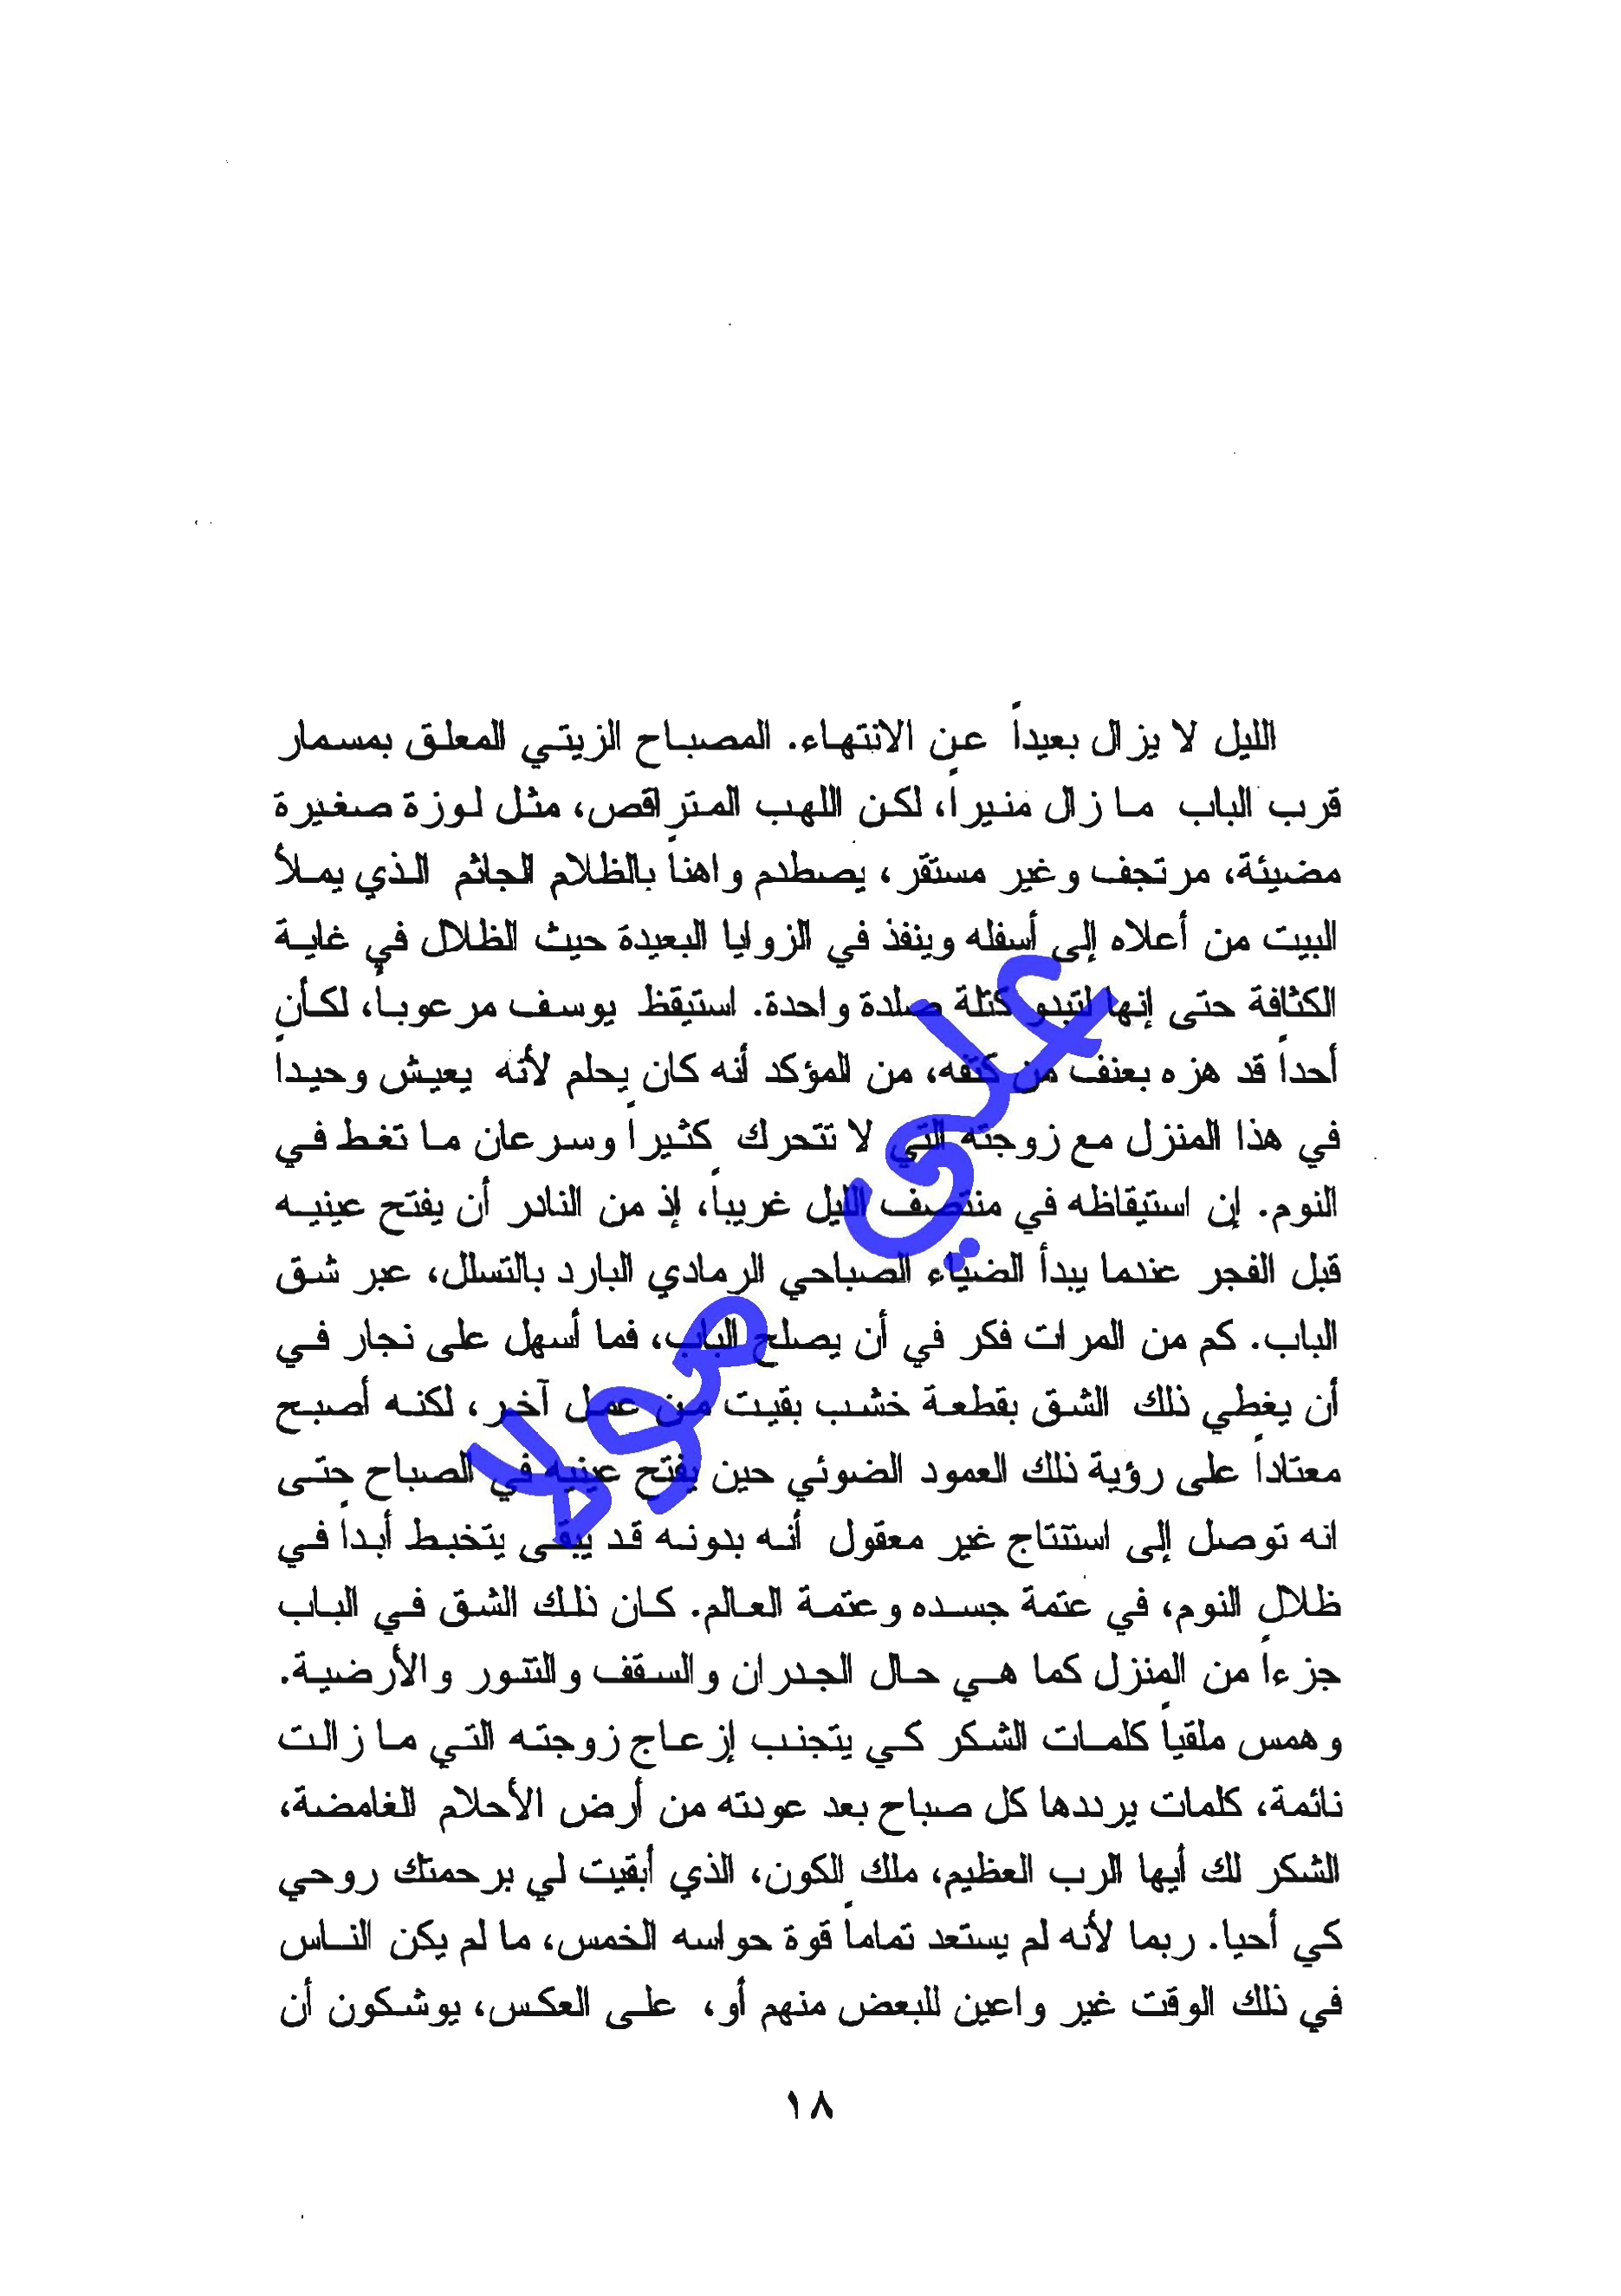 الليل لا يزال بعيداً عن الانتهاء. المصباح الزيتي المعلق بمسمار
قرب الباب ما زال منيراً، لكن اللهب المتراقص، مثل لوزة صغيرة
مضيئة، مرتجف وغير مستقر، يصطدم واهناً بالظلام الجاثم الذي يملأ
البيت من أعلاه إلى أسفله وينفذ في الزوايا البعيدة حيث الظلال في غاية
الكثافة حتى إنها لتبدو كتلة صلدة واحدة. استيقظ يوسف مرعوباً، لكأن
أحداً قد هزه بعنف من كتفه، من المؤكد أنه كان يحلم لأنه يعيش وحيداً
في هذا المنزل مع زوجته التي لا تتحرك كثيراً وسرعان ما تغط في
النوم. إن استيقاظه في منتصف الليل غريباً، إذ من النادر أن يفتح عينيه
قبل الفجر عندما يبدأ الضياء الصباحي الرمادي البارد بالتسلل، عبر شق
الباب. كم من المرات فكر في أن يصلح الباب، فما أسهل على نجار في
أن يغطي ذلك الشق بقطعة خشب بقيت من عمل آخر، لكنه أصبح
معتاداً على رؤية ذلك العمود الضوئي حين يفتح عينيه في الصباح حتى
انه توصل إلى استنتاج غير معقول أنه بدونه قد يبقى يتخبط أبداً في
ظلال النوم، في عتمة جسده وعتمة العالم. كان ذلك الشق في الباب
جزءاً من المنزل كما هي حال الجدران والسقف والتنور والأرضية.
وهمس ملقياً كلمات الشكر كي يتجنب إزعاج زوجته التي ما زالت
نائمة، كلمات يرددها كل صباح بعد عودته من أرض الأحلام الغامضة،
الشكر لك أيها الرب العظيم، ملك الكون، الذي أبقيت لي برحمتك روحي
كي أحيا. ربما لأنه لم يستعد تماماً قوة حواسه الخمس، ما لم يكن الناس
في ذلك الوقت غير واعين للبعض منهم أو، على العكس، يوشكون أن
١٨
علي مولا